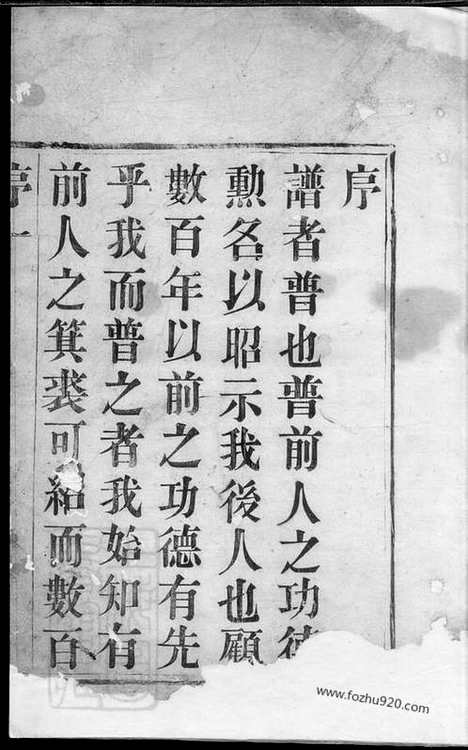 序
譜者普也普前人之功德
勳名以昭示我後人也顧
數百年以前之功德有先
乎我而普之者我始知有
前人之箕裘可紹而數百
序一
www.fozhu920.com